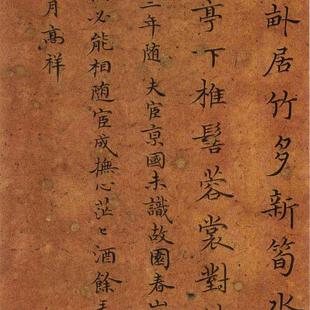 畝居竹多新筍水
亭下椎髻蓉裳對
二年随夫宦京國未識故園春山
必能相随宦成撫心茫〻酒餘
月高祥